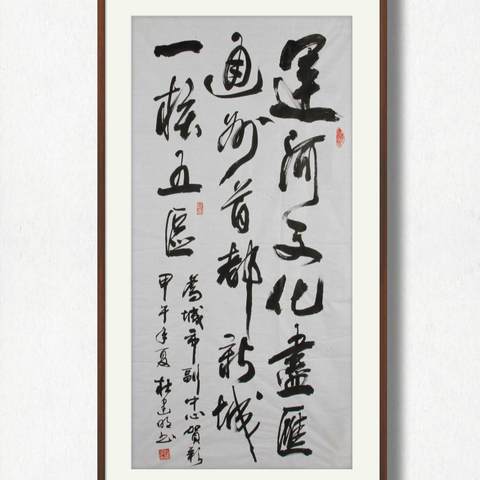 運河文化盡匯
通州首都新城
一核五區
為城市副中心賀彩
甲午年夏 杜建明书